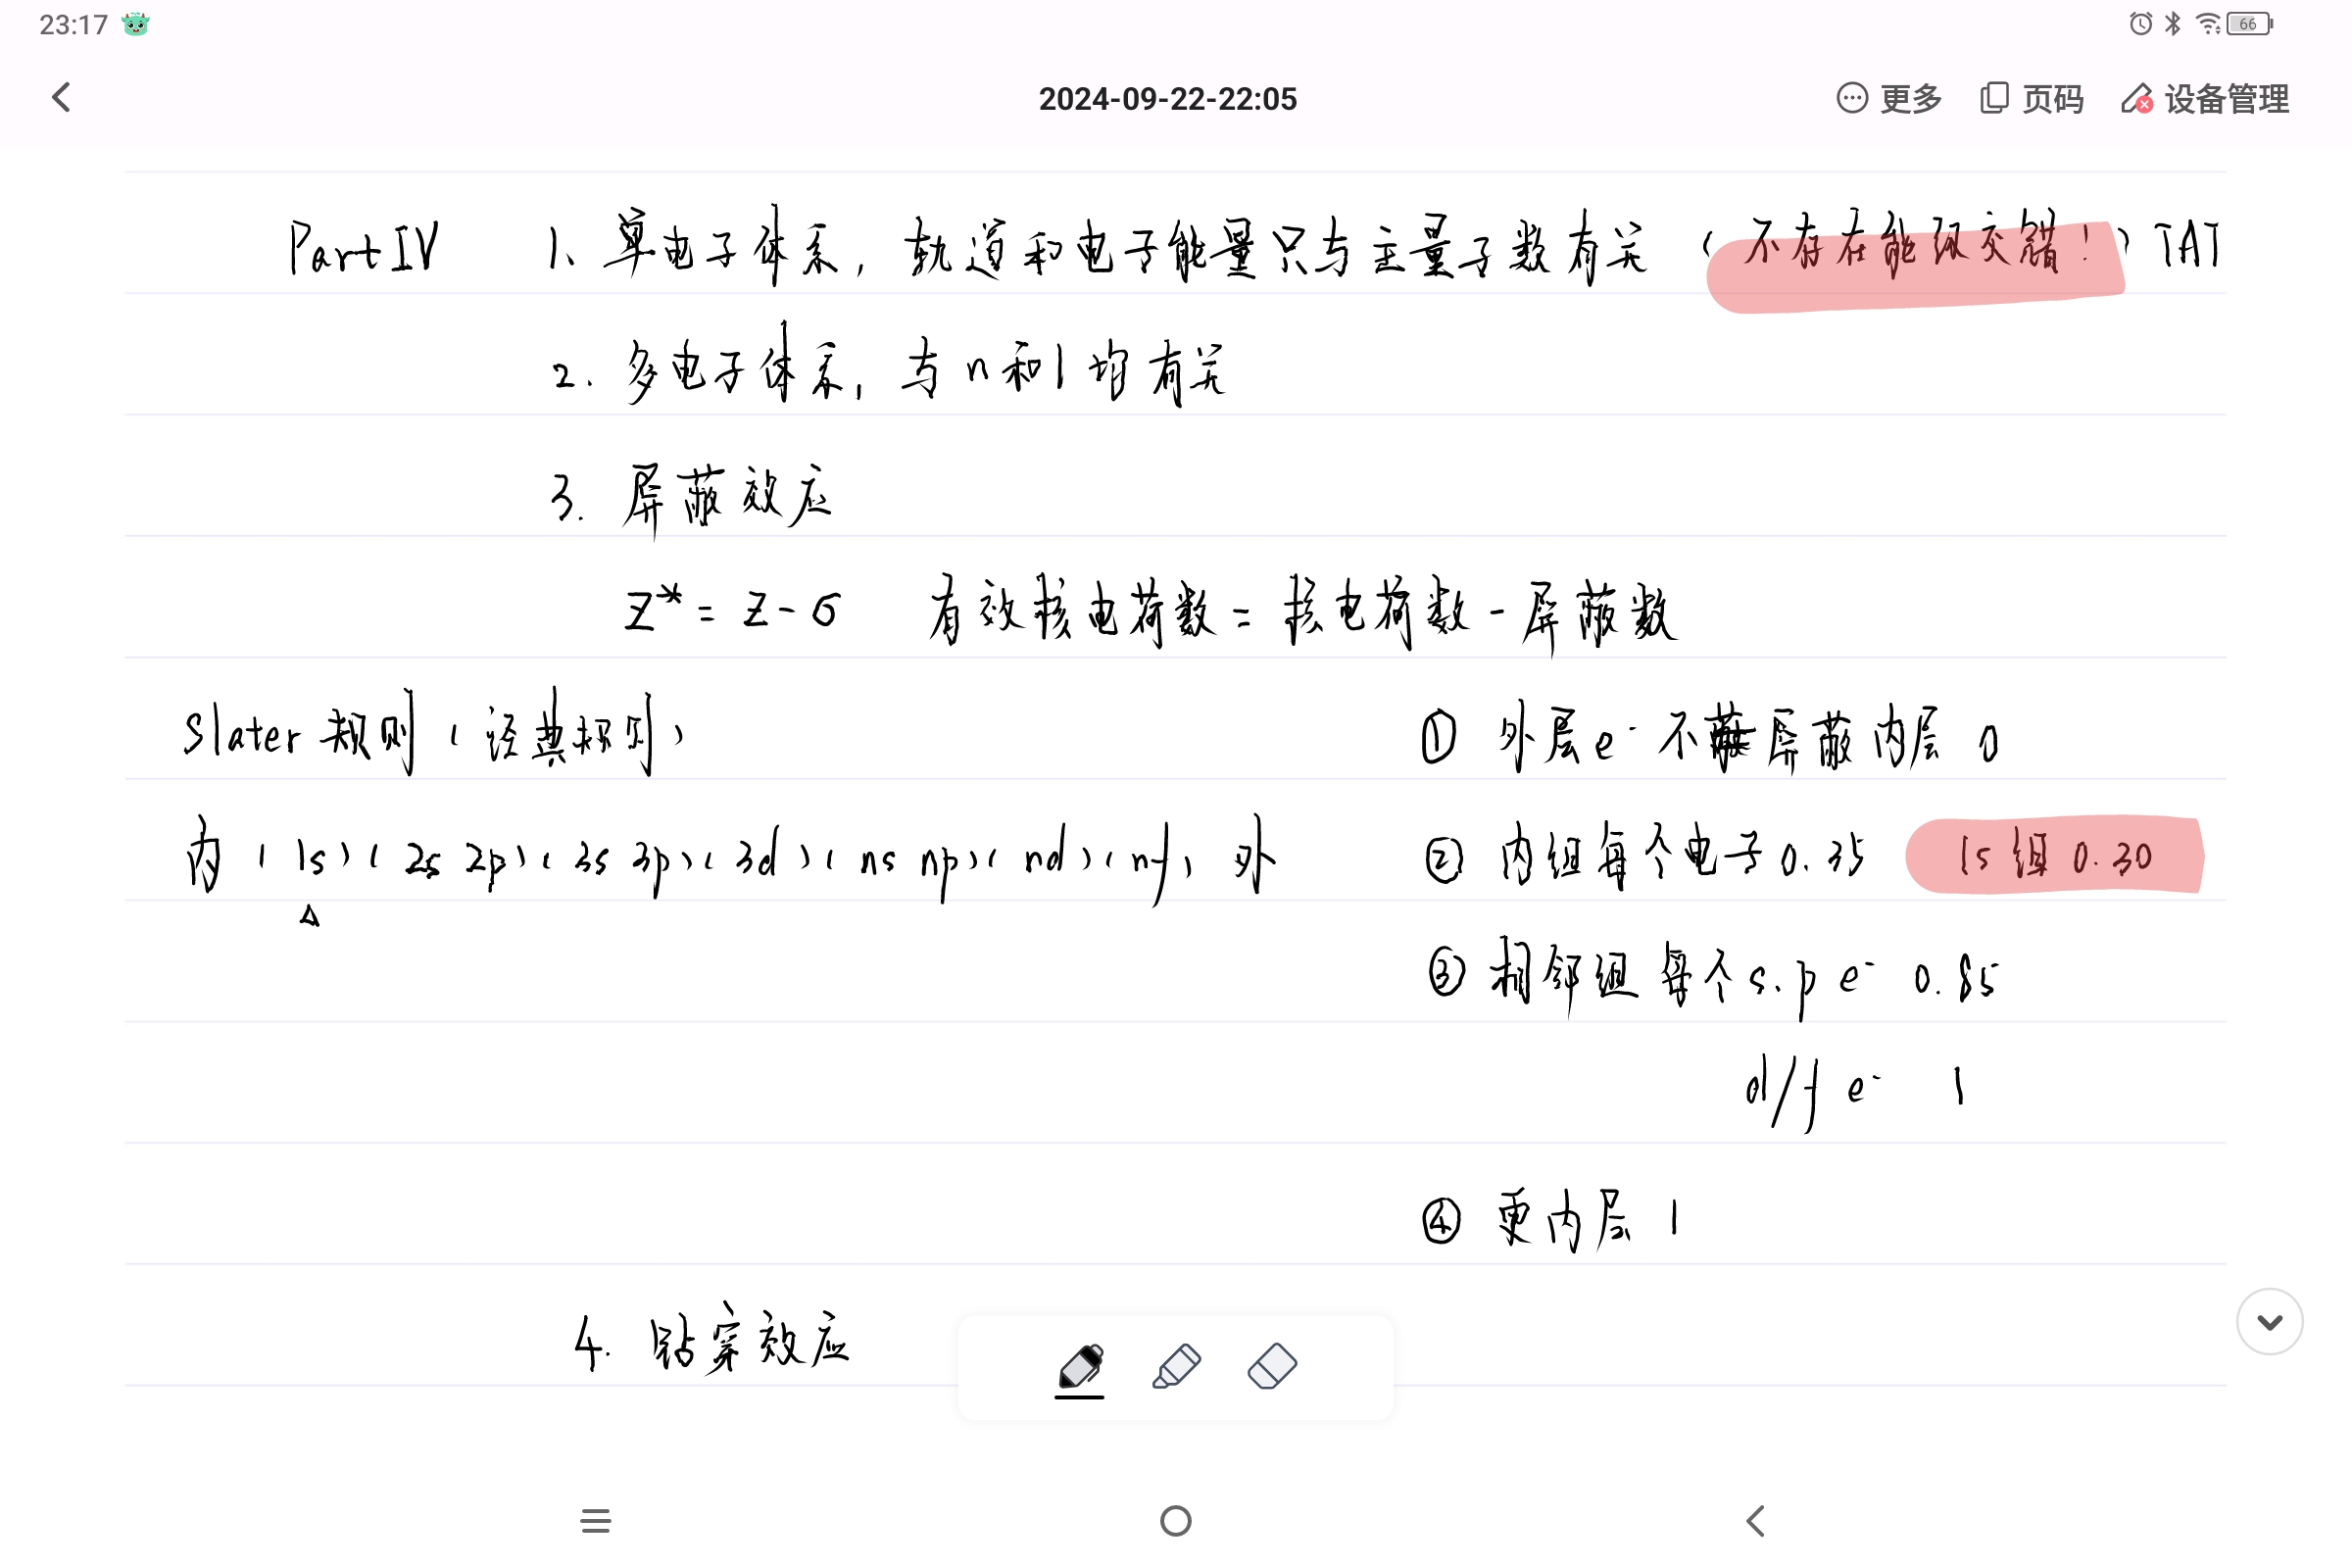 23:17 66
2024-09-22-22:05 更多 页码 设备管理
Part IV 1、单电子体系，轨道和电子能量只与主量子数有关（不存在能级交错！）TAT
2. 多电子体系，与n和l均有关
3. 屏蔽效应
Z* = Z - σ 有效核电荷数 = 核电荷数 - 屏蔽数
Slater 规则（经典规则）
① 外层e⁻不屏蔽内层 0
内（1s）（2s 2p）（3s 3p）（3d）（ns np）（nd）（nf）外
② 内组每个电子0.35 1s组 0.30
③ 相邻组 每个s.p e⁻ 0.85
d/f e⁻ 1
④ 更内层 1
4. 钻穿效应